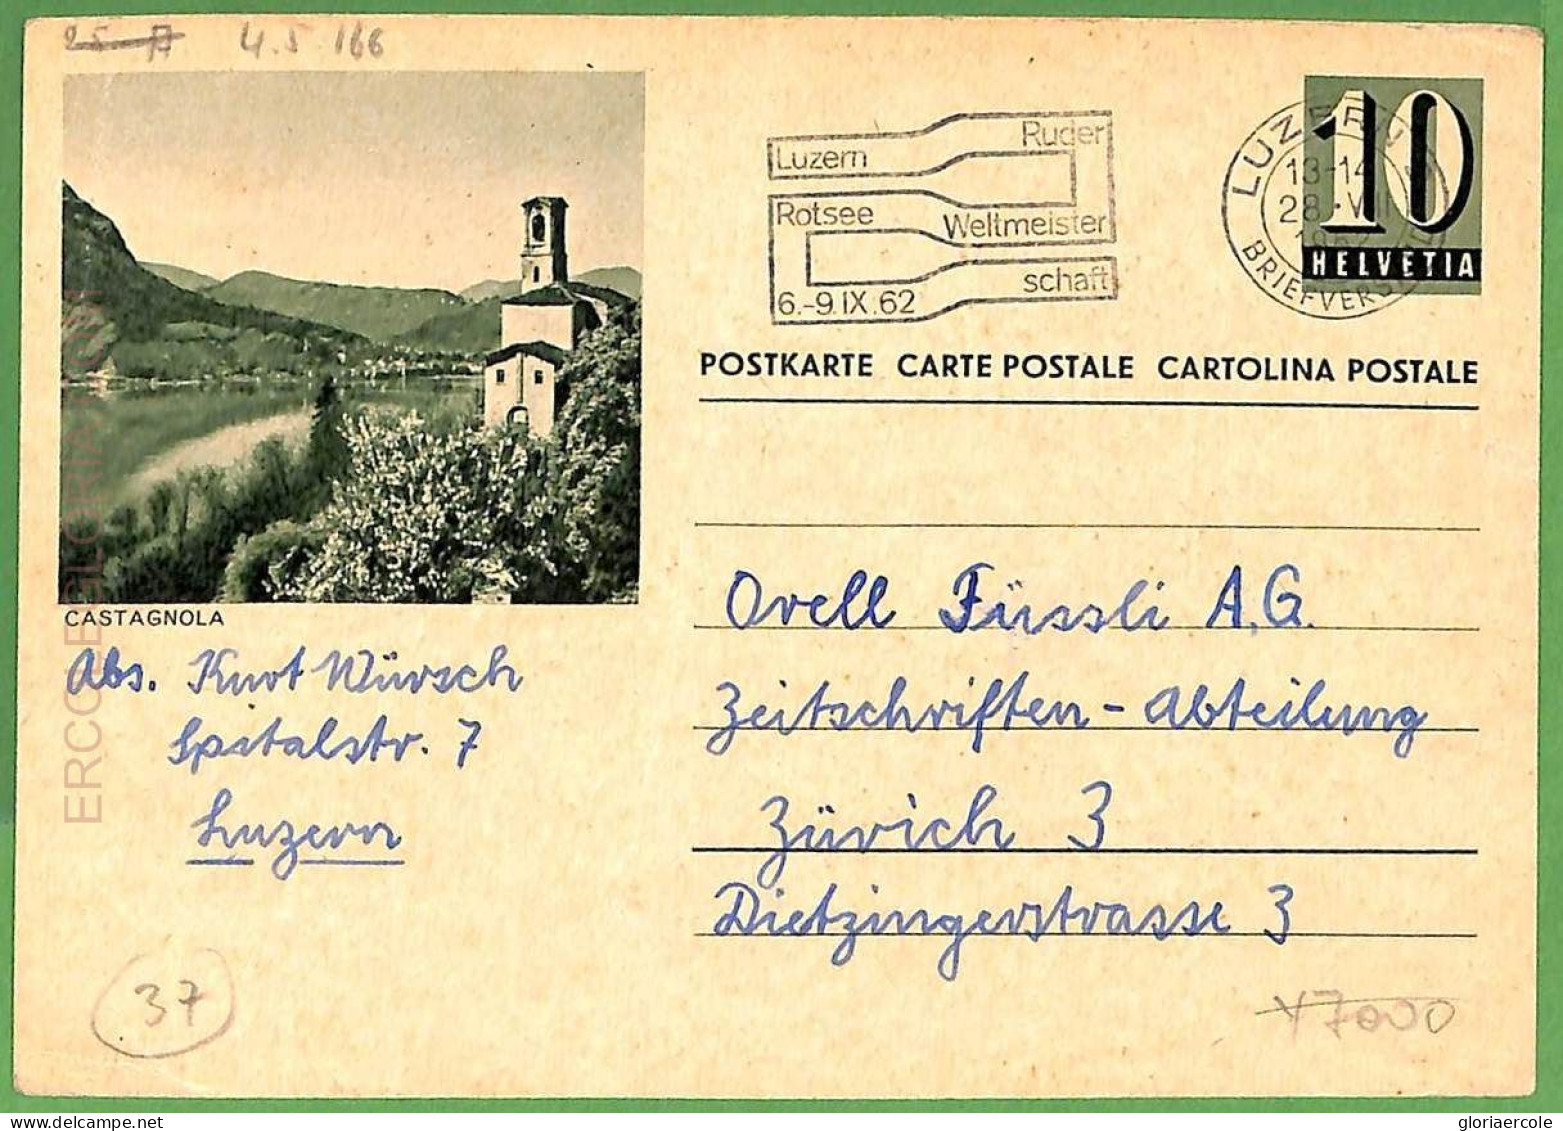 25 A 4.5 166
Luzern Ruder
Rotsee Weltmeister
schaft
6.-9. IX. 62
LUZERN
13-14
28. VIII
1962
BRIEFVERSAND
10
HELVETIA
POSTKARTE CARTE POSTALE CARTOLINA POSTALE
CASTAGNOLA
Abs. Kurt Würsch
Spitalstr. 7
Luzern
Orell Füssli A.G.
Zeitschriften-Abteilung
Zürich 3
Dietzingerstrasse 3
37
Y7000
ERCOLE GLORIA
gloriaercole